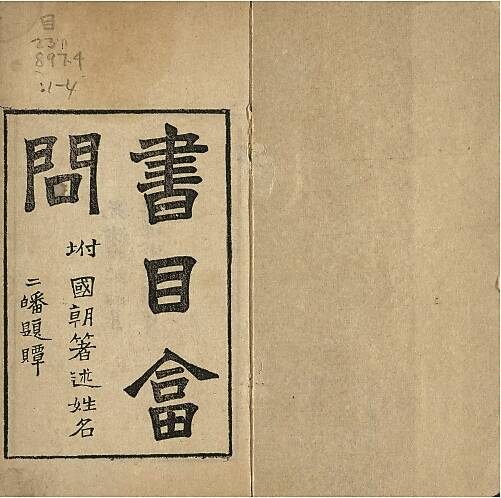 目
23n
897.4
:1-4
書目畣
問
坿國朝箸述姓名
二皤題䭞